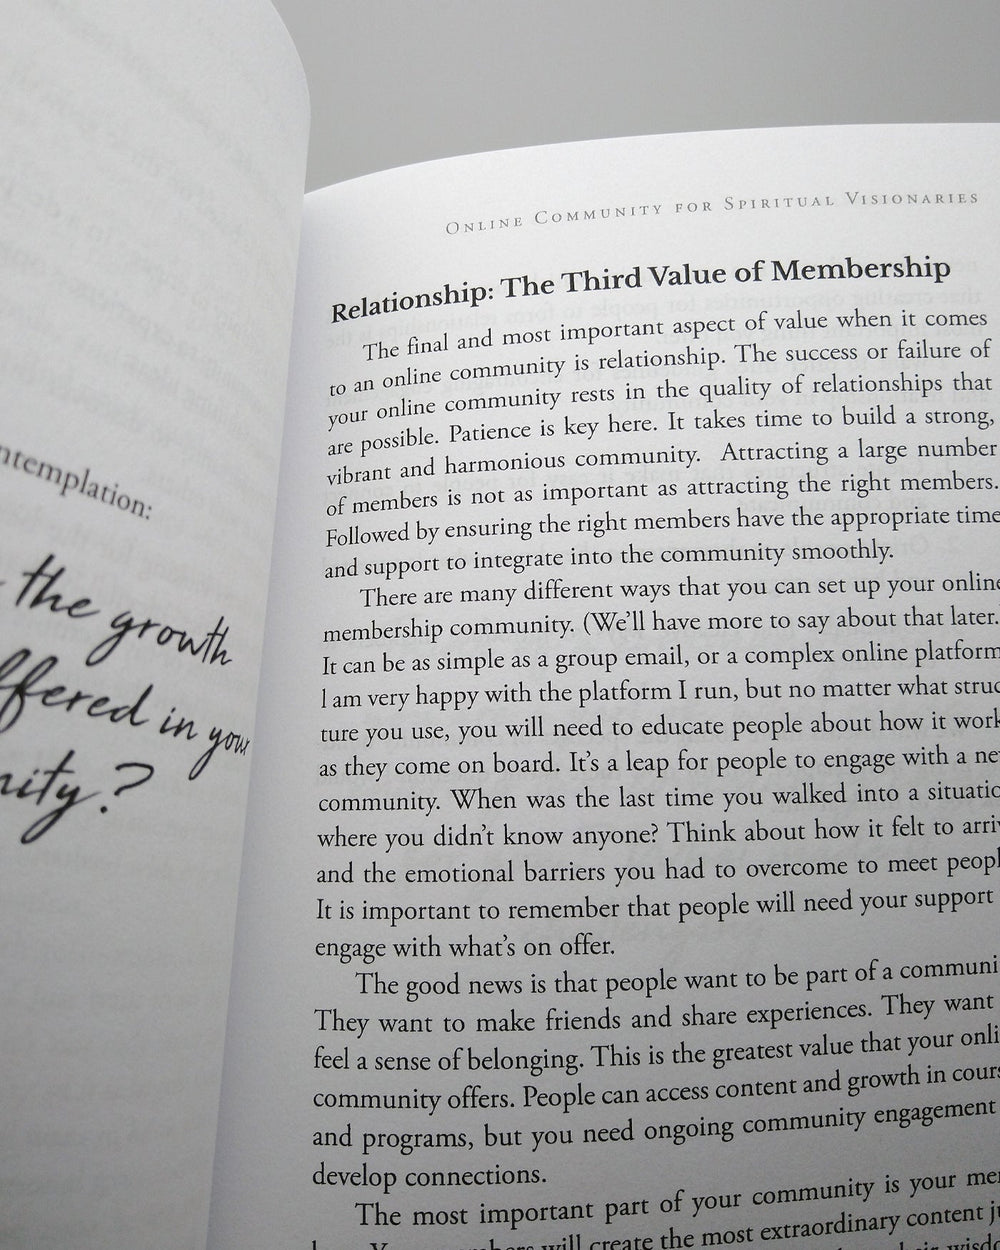 ntemplation:
the growth
ffered in your
nity?
ONLINE COMMUNITY FOR SPIRITUAL VISIONARIES
Relationship: The Third Value of Membership
The final and most important aspect of value when it comes
to an online community is relationship. The success or failure of
your online community rests in the quality of relationships that
are possible. Patience is key here. It takes time to build a strong,
vibrant and harmonious community. Attracting a large number
of members is not as important as attracting the right members.
Followed by ensuring the right members have the appropriate time
and support to integrate into the community smoothly.
There are many different ways that you can set up your online
membership community. (We'll have more to say about that later.
It can be as simple as a group email, or a complex online platform
I am very happy with the platform I run, but no matter what struc
ture you use, you will need to educate people about how it work
as they come on board. It's a leap for people to engage with a ne
community. When was the last time you walked into a situatio
where you didn't know anyone? Think about how it felt to arriv
and the emotional barriers you had to overcome to meet peopl
It is important to remember that people will need your support
engage with what's on offer.
The good news is that people want to be part of a communi
They want to make friends and share experiences. They want
feel a sense of belonging. This is the greatest value that your onli
community offers. People can access content and growth in cours
and programs, but you need ongoing community engagement
develop connections.
The most important part of your community is your me
will create the most extraordinary content j